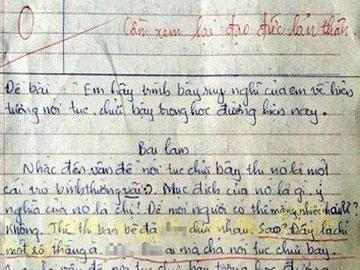 0
Cần xem lại đạo đức bản thân.
Đề bài: Em hãy trình bày suy nghĩ của em về hiện
tượng nói tục, chửi bậy trong học đường hiện nay.
Bài làm
Nhắc đến vấn đề nói tục chửi bậy thì nó là một
cái trò bình thường vãi :). Mục đích của nó là gì, ý
nghĩa của nó là chi! Để mọi người có thể mắng nhiếc hai?
Không. Thế thì bạn bè đá chửi nhau. Sao? Đấy là chỉ
một số thằng a. ai mà chả nói tục chửi bậy.